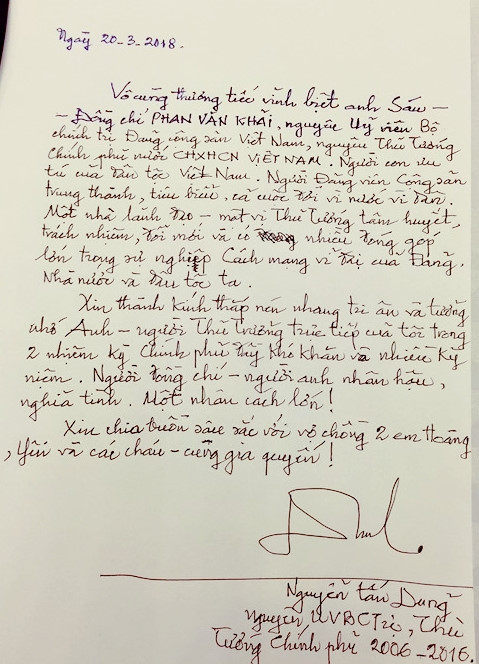 Ngày 20-3-2018.
Vô cùng thương tiếc vĩnh biệt anh Sáu –
– Đồng chí PHAN VĂN KHẢI, nguyên Uỷ viên Bộ
chính trị Đảng Cộng sản Việt Nam, nguyên Thủ Tướng
Chính phủ nước CHXHCN VIỆT NAM. Người con ưu
tú của dân tộc Việt Nam. Người Đảng viên Cộng sản
trung thành, tiêu biểu, cả cuộc đời vì nước vì dân.
Một nhà lãnh đạo – một vị Thủ Tướng tâm huyết,
trách nhiệm, đổi mới và có nhiều đóng góp
lớn trong sự nghiệp Cách mạng vĩ đại của Đảng,
Nhà nước và dân tộc ta.
Xin thành kính thắp nén nhang tri ân và tưởng
nhớ Anh – người Thủ Trưởng trực tiếp của tôi trong
2 nhiệm kỳ Chính phủ đầy khó khăn và nhiều kỷ
niệm. Người đồng chí – người anh nhân hậu,
nghĩa tình. Một nhân cách lớn!
Xin chia buồn sâu sắc với vợ chồng 2 em Hoàng
, Yến và các cháu – cùng gia quyến!
Nguyễn Tấn Dũng
Nguyên UVBCTrị, Thủ
Tướng Chính phủ 2006-2016.